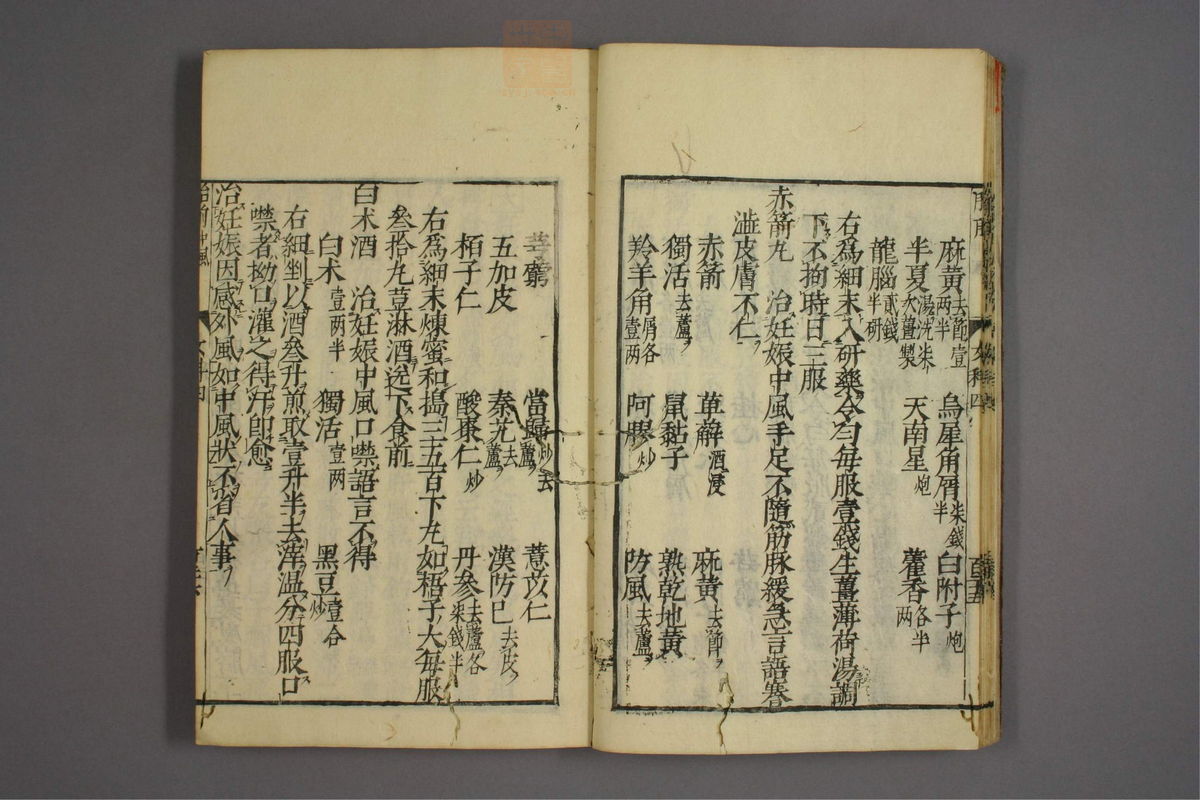 麻黄去節壹两半 烏犀角屑柒錢半 白附子炮
半夏湯洗柒次薑製 天南星炮 藿香各半两
龍腦貳錢半研
右爲細末入研藥令勻每服壹錢生薑薄荷湯調
下不拘時日三服
赤箭丸 治妊娠中風手足不隨筋脉緩急言語蹇
澁皮膚不仁
赤箭 萆薢酒浸 麻黄去節
獨活去蘆 鼠黏子 熟乾地黄
羚羊角屑各壹两 阿膠炒 防風去蘆
芎藭 當歸炒去蘆 薏苡仁
五加皮 秦艽去蘆 漢防已去皮
栢子仁 酸棗仁炒 丹參去蘆各柒錢半
右爲細末煉蜜和搗三五百下丸如梧子大每服
叁拾丸荳淋酒送下食前
白术酒 治妊娠中風口噤語言不得
白术壹两半 獨活壹两 黑豆炒壹合
右細剉以酒叁升煎取壹升半去滓温分四服口
噤者拗口灌之得汗即愈
治妊娠因感外風如中風狀不省人事